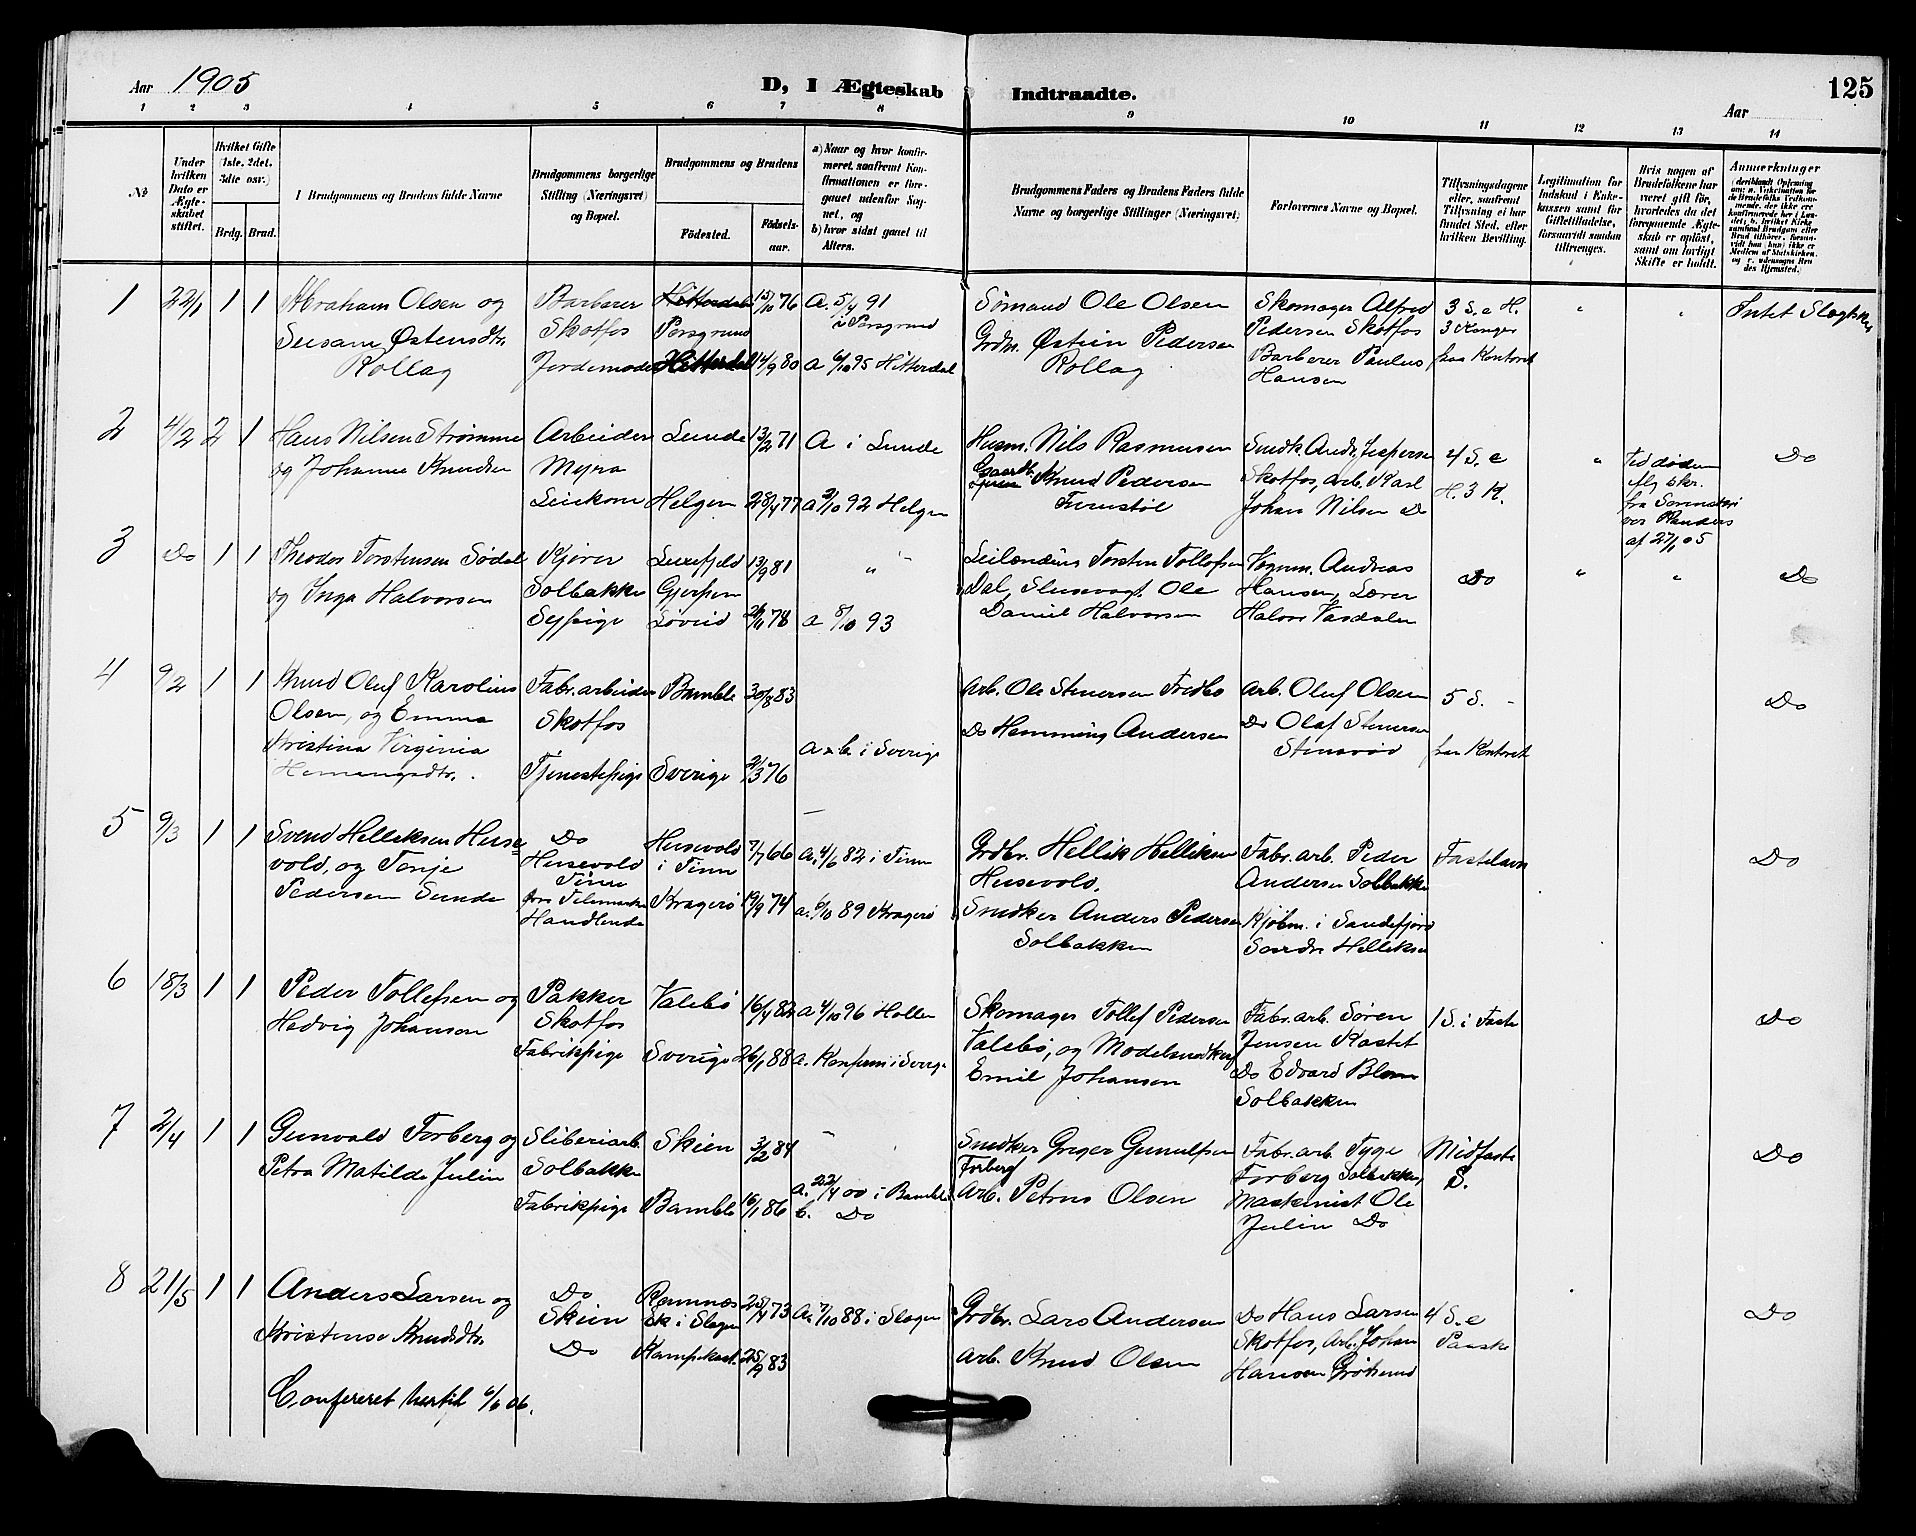 Aar 1905
D, I Ægteskab Indtraadte.
Aar
125
1 2 3 4 5 6 7 8 9 10 11 12 13 14
№
Under hvilken Dato er Ægteskabet stiftet.
Hvilket Gifte (1ste, 2det, 3die osv.)
Brdg. Brud.
I Brudgommens og Brudens fulde Navne
Brudgommens borgerlige Stilling (Næringsvei) og Bopæl.
Brudgommens og Brudens
Fødested. Fødselsaar.
a) Naar og hvor konfirmeret, saafremt Konfirmationen er foregaaet udenfor Sognet, og
b) hvor sidst gaaet til Alters.
Brudgommens Faders og Brudens Faders fulde Navne og borgerlige Stillinger (Næringsvei)
Forlovernes Navne og Bopæl.
Tillysningsdagene eller, saafremt Tillysning ei har fundet Sted, efter hvilken Bevilling.
Legitimation for Indskud i Enkekassen samt for Giftetilladelse, forsaavidt saadan tiltrænges.
Hvis nogen af Brudefolkene har været gift før, hvorledes da det foregaaende Ægteskab er opløst, samt om lovligt Skifte er holdt.
Anmerkninger
1 22/1 1 1 Abraham Olsen og Barberer Hitterdal 15/10 76 a. 5/4 91 Sømand Ole Olsen Skomager Alfred 3 S. e H. " " Intet Slægtsk.
Susann Østensdtr. Skotfos Porsgrund i Porsgrund Grdm. Østein Pedersen Pedersen Skotfos 3 Konger
Rollag Jordemoder Hitterdal 14/9 80 a 6/10 95 Hitterdal Rollag Barberer Paulus fra Kontoret
Hansen
2 4/2 2 1 Hans Nilsen Strømme Arbeider Lunde 13/2 71 a i Lunde Husm. Nils Rasmussen Snedk. Andr. Jespersen 4 S. e " Ved døden Do
og Johanne Knudsen Myra Knud Pedersen Skotfos, arb. Karl H. 3 K.
Leiekone Helgen 28/4 77 a 2/10 92 Helgen Furustøl Johan Nilsen Do fra
af 27/1 05
3 Do 1 1 Theodor Torstensen Sødal Kjører Luxefjeld 13/9 81 " Leilænding Torsten Tollefsen Vognm. Andreas Do " " Do
og Inga Halvorsen Solbakke Gjerpen Dal, Slusevogt Ole Hansen, Lærer
Sypige Løveid 26/11 78 a 8/10 93 Daniel Halvorsen Halvor Vasdalen
4 9/2 1 1 Knud Oluf Karolius Fabr.arbeider Bamble 30/8 83 Arb. Ole Stenersen Fredbo Arb. Oluf Olsen 5 S. - Do
Olsen, og Emma Skotfos Do Hemming Andersen Do Olaf Stenersen
Kristina Virginia a & b. i Sverige Stensrød fra Kontoret
Hemmingsdtr. Tjenestepige Sverige 21/3 76
5 9/3 1 1 Svend Helleksen Huse= Do Husevold 7/7 66 a. 4/6 82 i Tinn Grdbr. Hellik Helliksen Fabr.arb. Peder Fastelavn Do
vold, og Tonje Husevold i Tinn Husevold. Andersen Solbakke
Pedersen Sunde Tinn Kragerø 19/9 74 a. 6/10 89 Kragerø Snedker Anders Pedersen Kjøbm. i Sandefjord
Handlende Solbakken Sondre Helliksen
6 18/3 1 1 Peder Tollefsen og Pakker Valebø 16/4 82 a 4/10 96 Hollen Skomager Tollef Pedersen Fabr.arb. Søren 1 S. i Faste Do
Hedvig Johanson Skotfos Valebø, og Modelsnedker Jensen Kastet
Fabrikpige Sverige 26/1 88 a. Konfirm i Sverige Emil Johansen Do Edvard Blom
Solbakken
7 2/4 1 1 Gunvald Forberg og Sliberiarb. Skien 3/2 84 - Snedker Greger Gunulfsen Fabr.arb. Tyge Midfaste Do
Petra Matilde Julin Solbakke Forberg Forberg Solbakke, S.
Fabrikpige Bamble 16/1 86 a. 22/4 00 i Bamble Arb. Petrus Olsen Maskinist Ole
b. Do Julin Do
8 21/5 1 1 Anders Larsen og Do Ramnæs 25/4 73 a. 7/10 88 i Slagen Grdbr. Lars Andersen Do Hans Larsen 4 S. e Do
Kristense Knudsdtr. Skien Sk i Slagen Skotfos, Arb. Johan Paaske
Do Kampekast. 25/2 83 Arb. Knud Olsen Hansen Grøtsund
Confereret hertil 6/6 06.